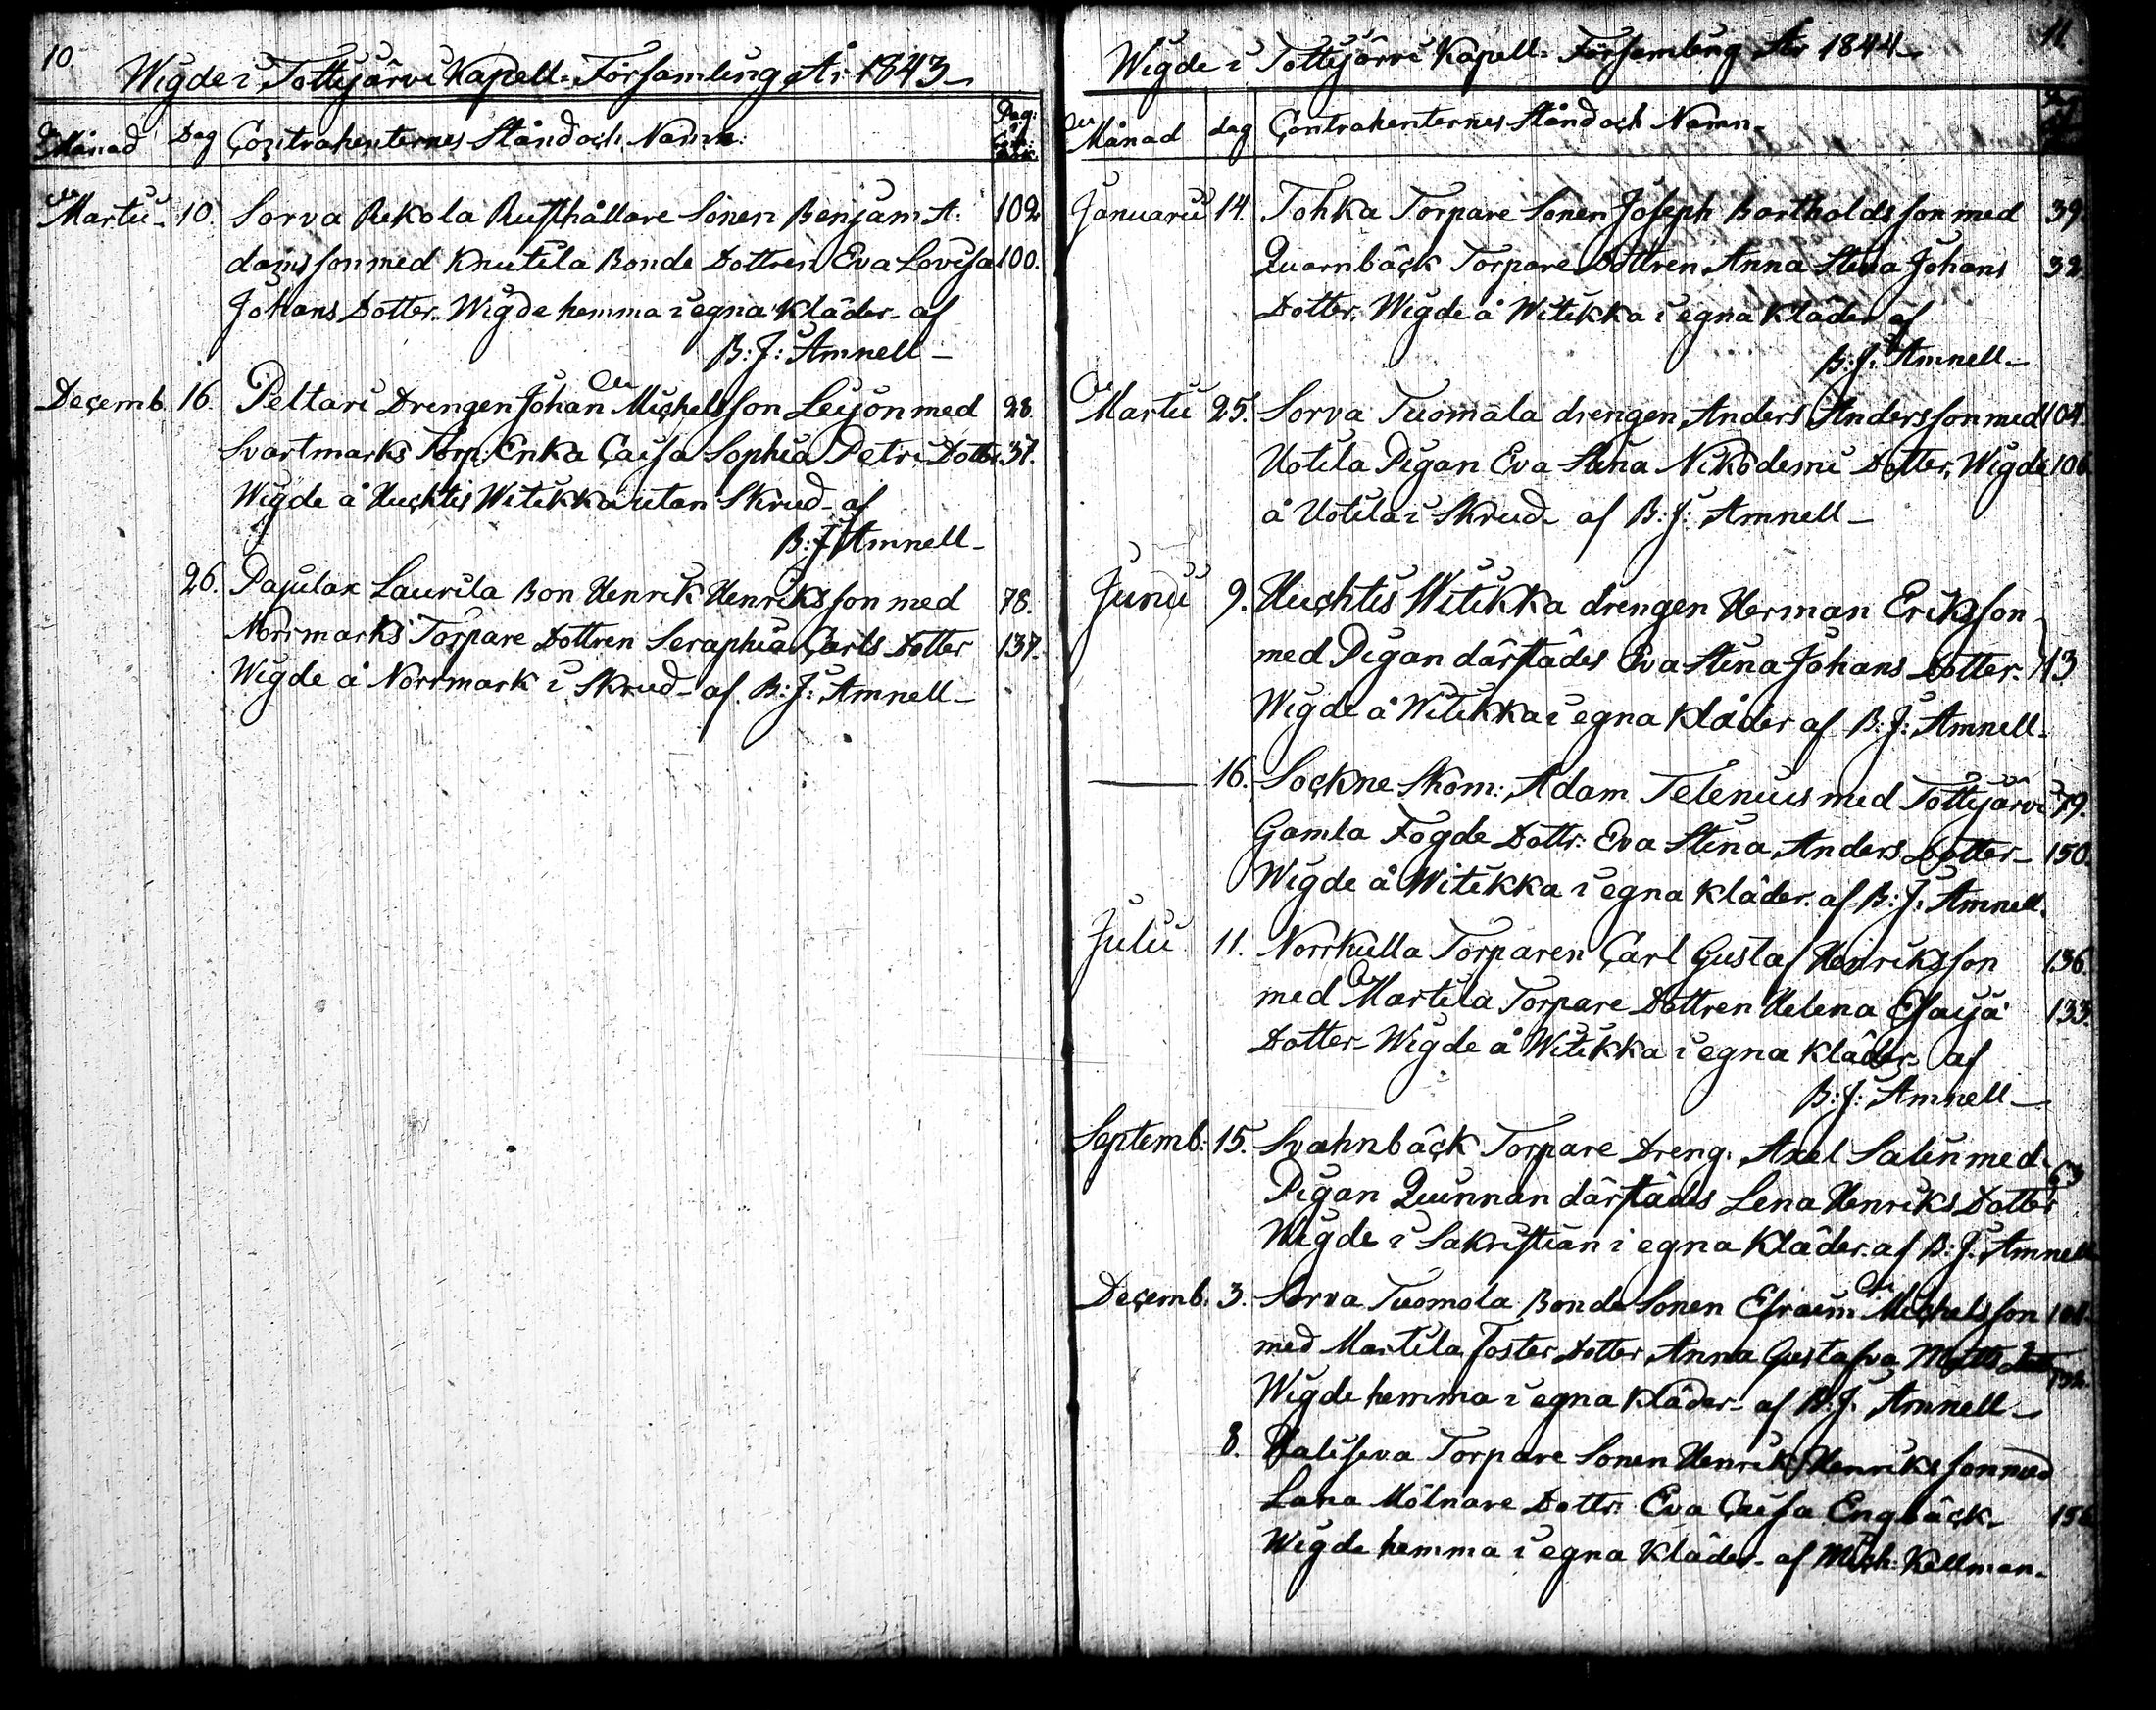 10
Wigde i Tottijärvi Kapell-Församling År 1843
Månad Dag Contrahenternes Stånd och Namn. Pag:
Martii 10. Sorva Rekola Rusthållare Sonen Benjam A: 102
damsson med Knutila Bonde Dottren Eva Lovisa 100.
Johans Dotter. Wigde hemma i egna kläder af
B: J: Amnell
Decemb. 16. Peltari Drengen Johan Michelsson Leijon med 28.
Svartmarks Torp: Enka Caisa Sophia Petri Dotter 37.
Wigde å Huchtis Witikka utan Skrud af
B: J: Amnell
26. Pajulax Laurila Bon Henrik Henriksson med 78.
Norrmarks Torpare Dottren Seraphia Carls Dotter 137.
Wigde å Norrmark i Skrud af B: J: Amnell
11
Wigde i Tottijärvi Kapell-Församling År 1844
Månad dag Contrahenternes Stånd och Namn
Januarii 14. Tohka Torpare Sonen Joseph Bartholdsson med 39.
Quarnbäck Torpare Dottren Anna Stina Johans 32.
Dotter. Wigde å Witikka i egna Kläder af
B: J: Amnell
Martii 25. Sorva Tuomala drengen Anders Andersson med 104.
Uotila Pigan Eva Stina Nikodemi Dotter, Wigde 106.
å Uotila i Skrud af B: J: Amnell
Junii 9. Huchtis Witikka drengen Herman Eriksson
med Pigan därstädes Eva Stina Johans Dotter. 13.
Wigde å Witikka i egna kläder af B: J: Amnell
16. Sockne Skom: Adam Telenius med Tottijärvi 79.
Gamla Fogde Dottr: Eva Stina Anders Dotter 150.
Wigde å Witikka i egna kläder af B: J: Amnell.
Julii 11. Norrkulla Torparen Carl Gustaf Henriksson 136.
med Martila Torpare Dottren Helena Esaiæ 133.
Dotter Wigde å Witikka i egna kläder af
B: J: Amnell
Septemb: 15. Svahnbäck Torpare Dreng. Axel Salin med
Pigan Quinnan därstädes Lena Henriks Dotter 63
Wigde i Sakristian i egna Kläder af B: J: Amnell
Decemb. 3. Sorva Tuomola Bonde Sonen Efraim Michelsson
med Martila Foster Dotter Anna Gustafva Matts
Wigde hemma i egna kläder af B: J: Amnell
8. Torpare Sonen Henrik Henriksson med
Lana Mölnare Dottr: Eva Caisa Engbäck
Wigde hemma i egna kläder af Mich: Kellman